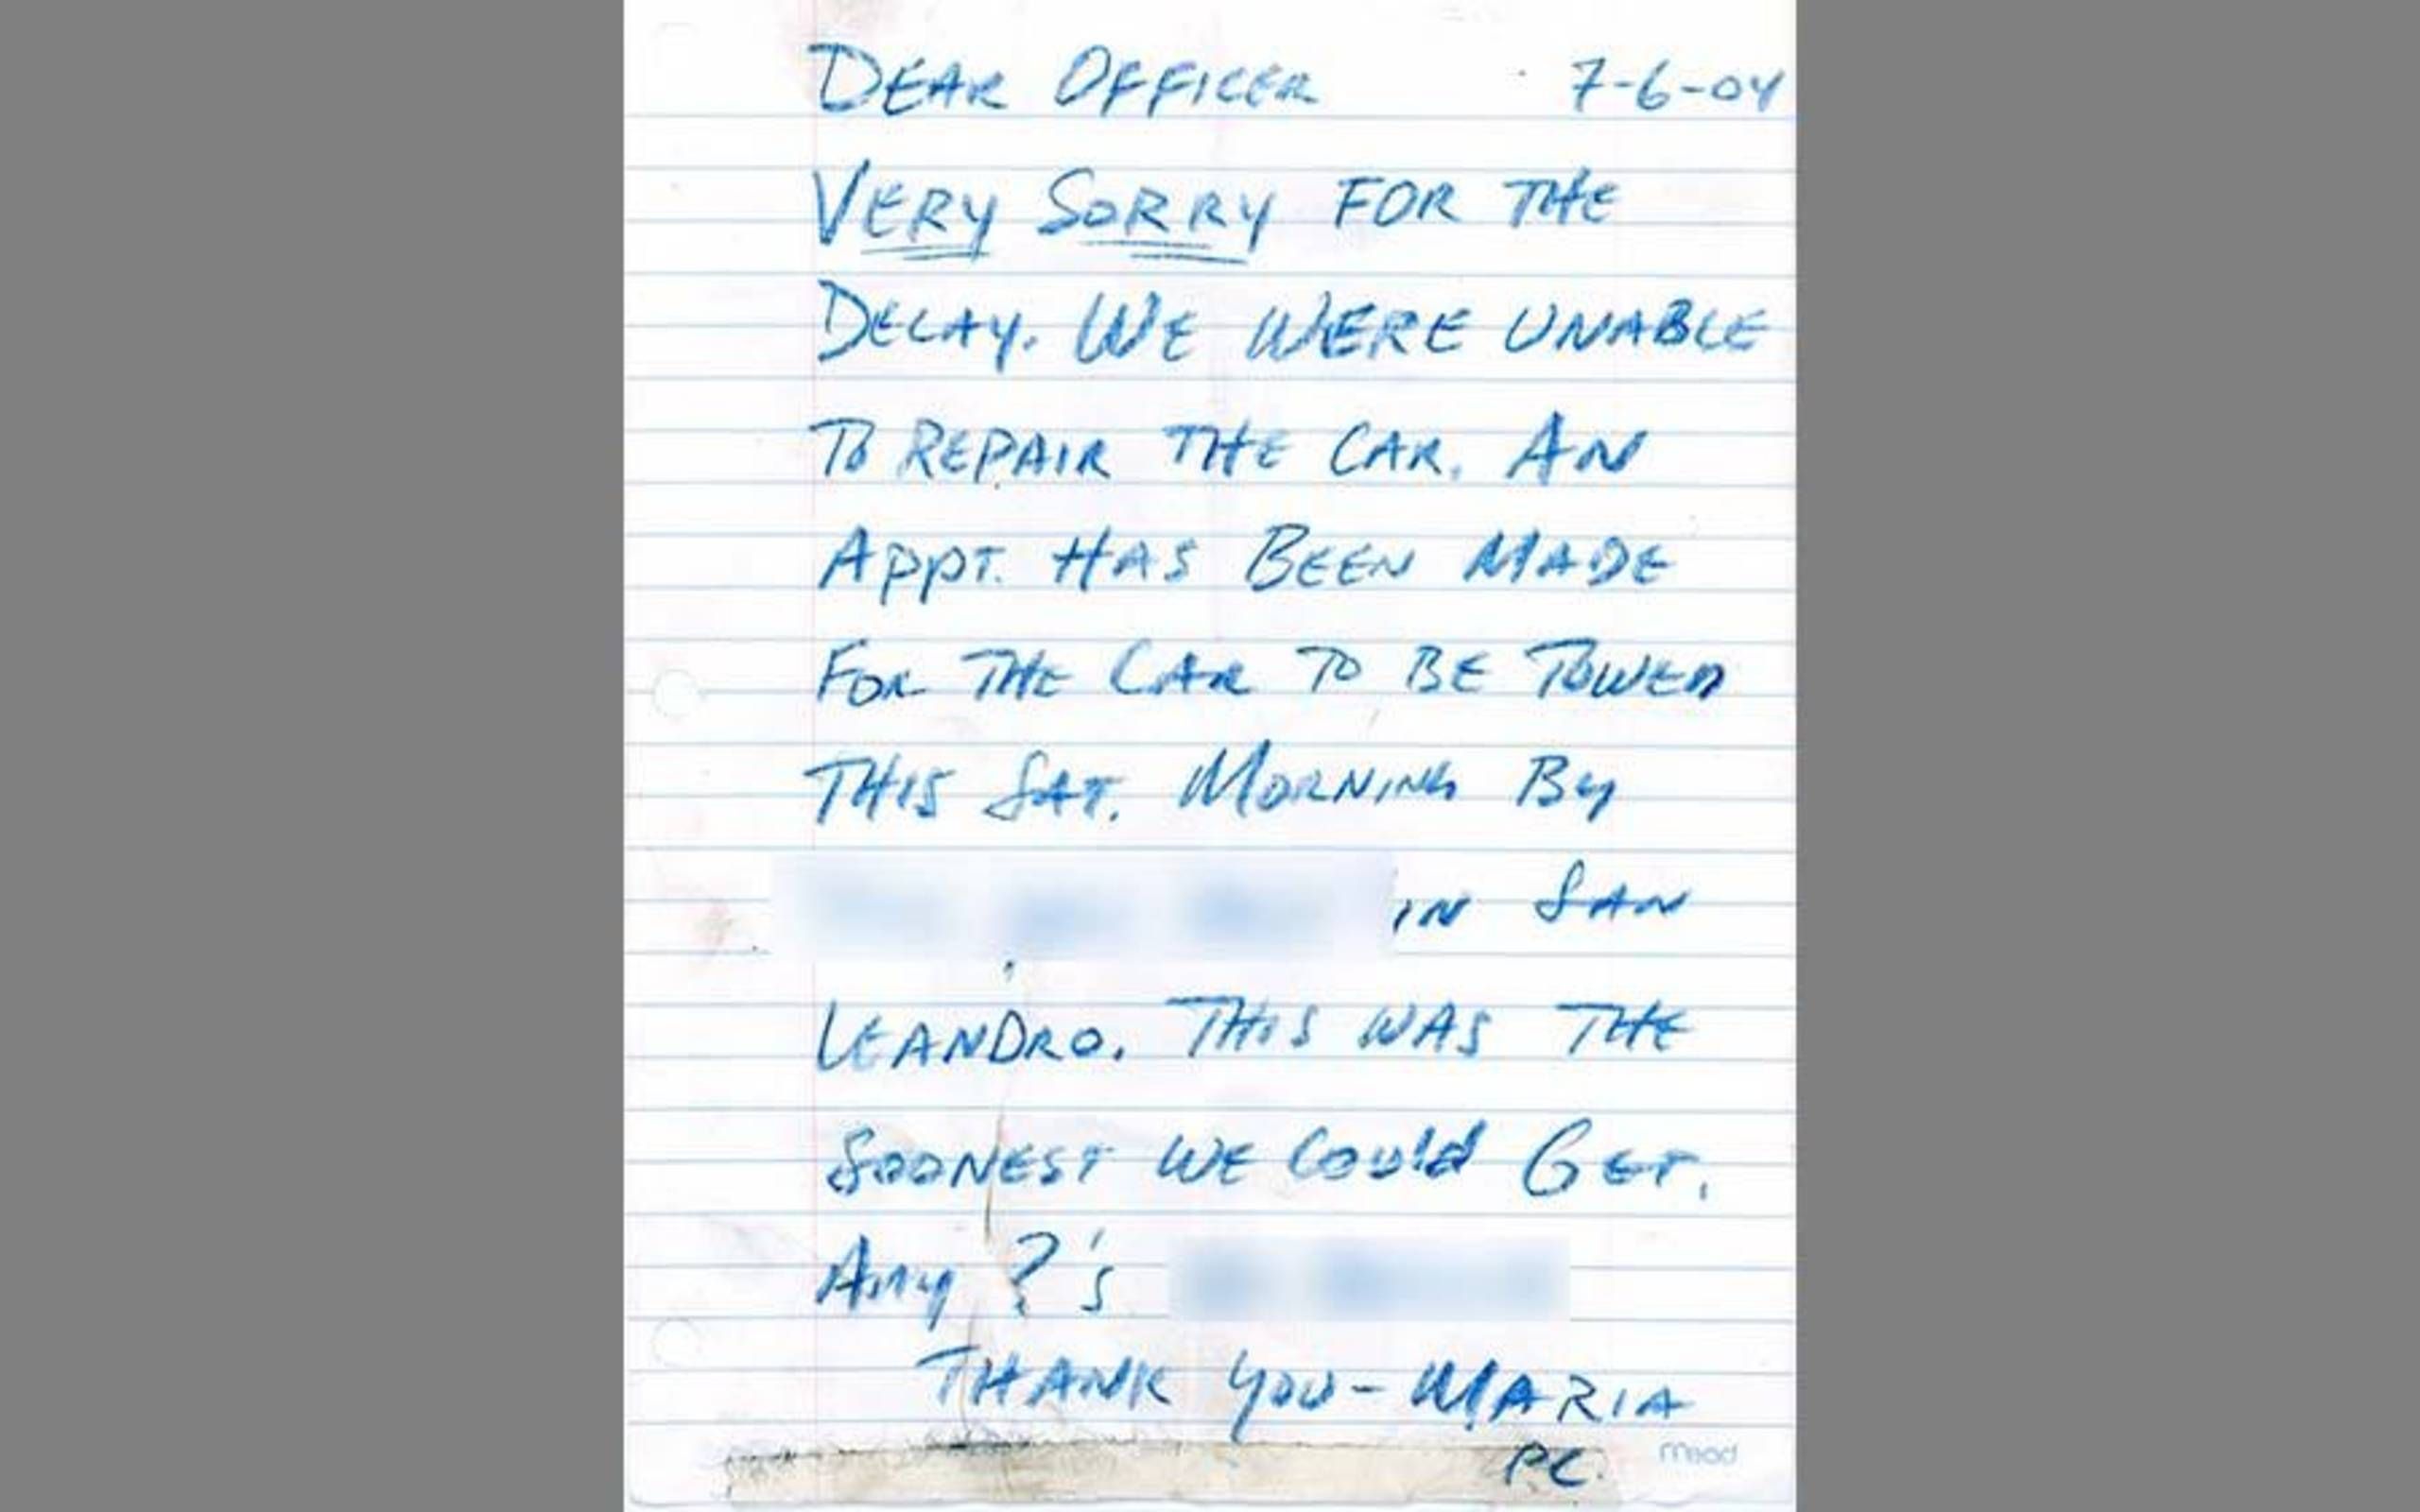 DEAR OFFICER 7-6-04
VERY SORRY FOR THE
DELAY. WE WERE UNABLE
TO REPAIR THE CAR. AN
APPT. HAS BEEN MADE
FOR THE CAR TO BE TOWED
THIS SAT. MORNING By
IN SAN
LEANDRO. THIS WAS THE
SOONEST WE Could GET.
Any ?'s
THANK YOU - MARIA
PC.
mead